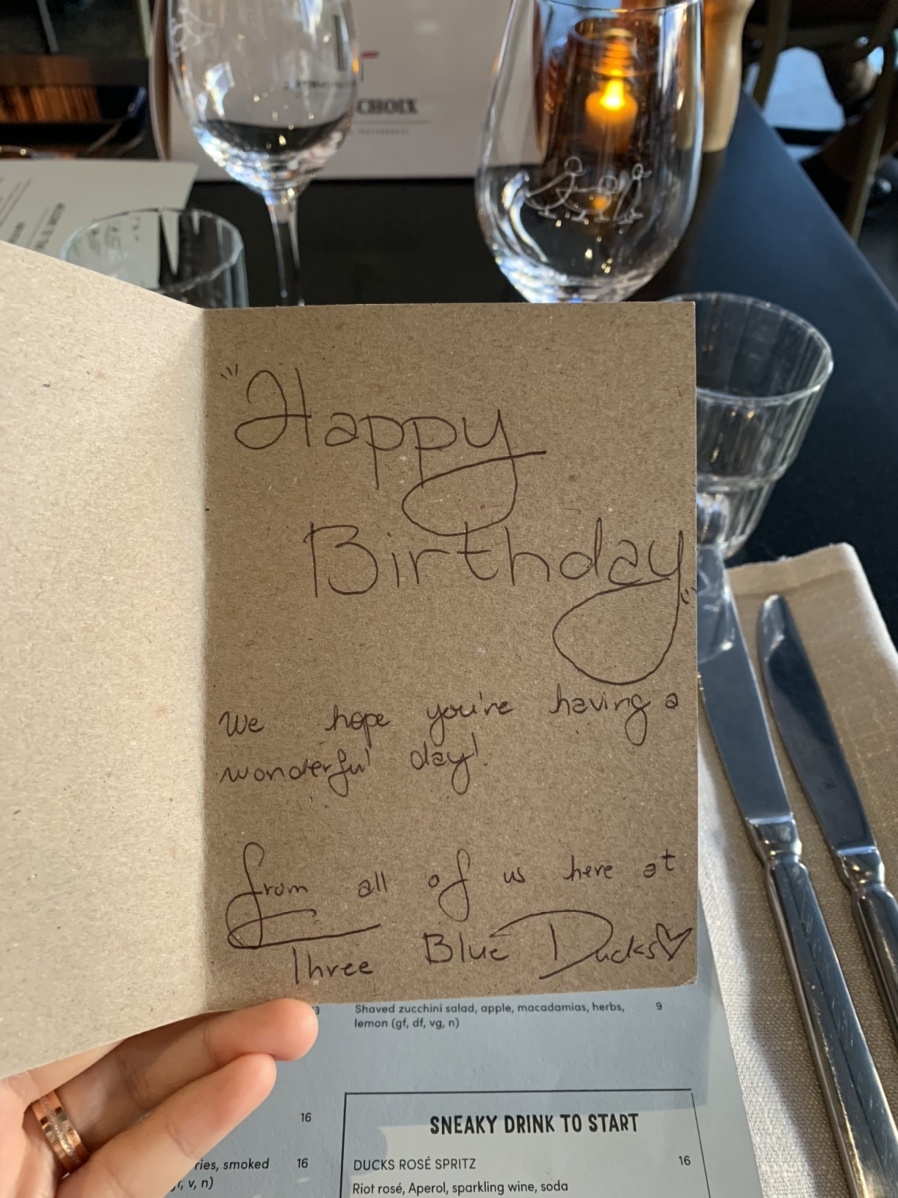 CHOIX
"Happy
Birthday"
We hope you're having a
wonderful day!
from all of us here at
Three Blue Ducks♡
Shaved zucchini salad, apple, macadamias, herbs, 9
lemon (gf, df, vg, n)
16
SNEAKY DRINK TO START
smoked 16
v, n)
DUCKS ROSÉ SPRITZ 16
Riot rosé, Aperol, sparkling wine, soda